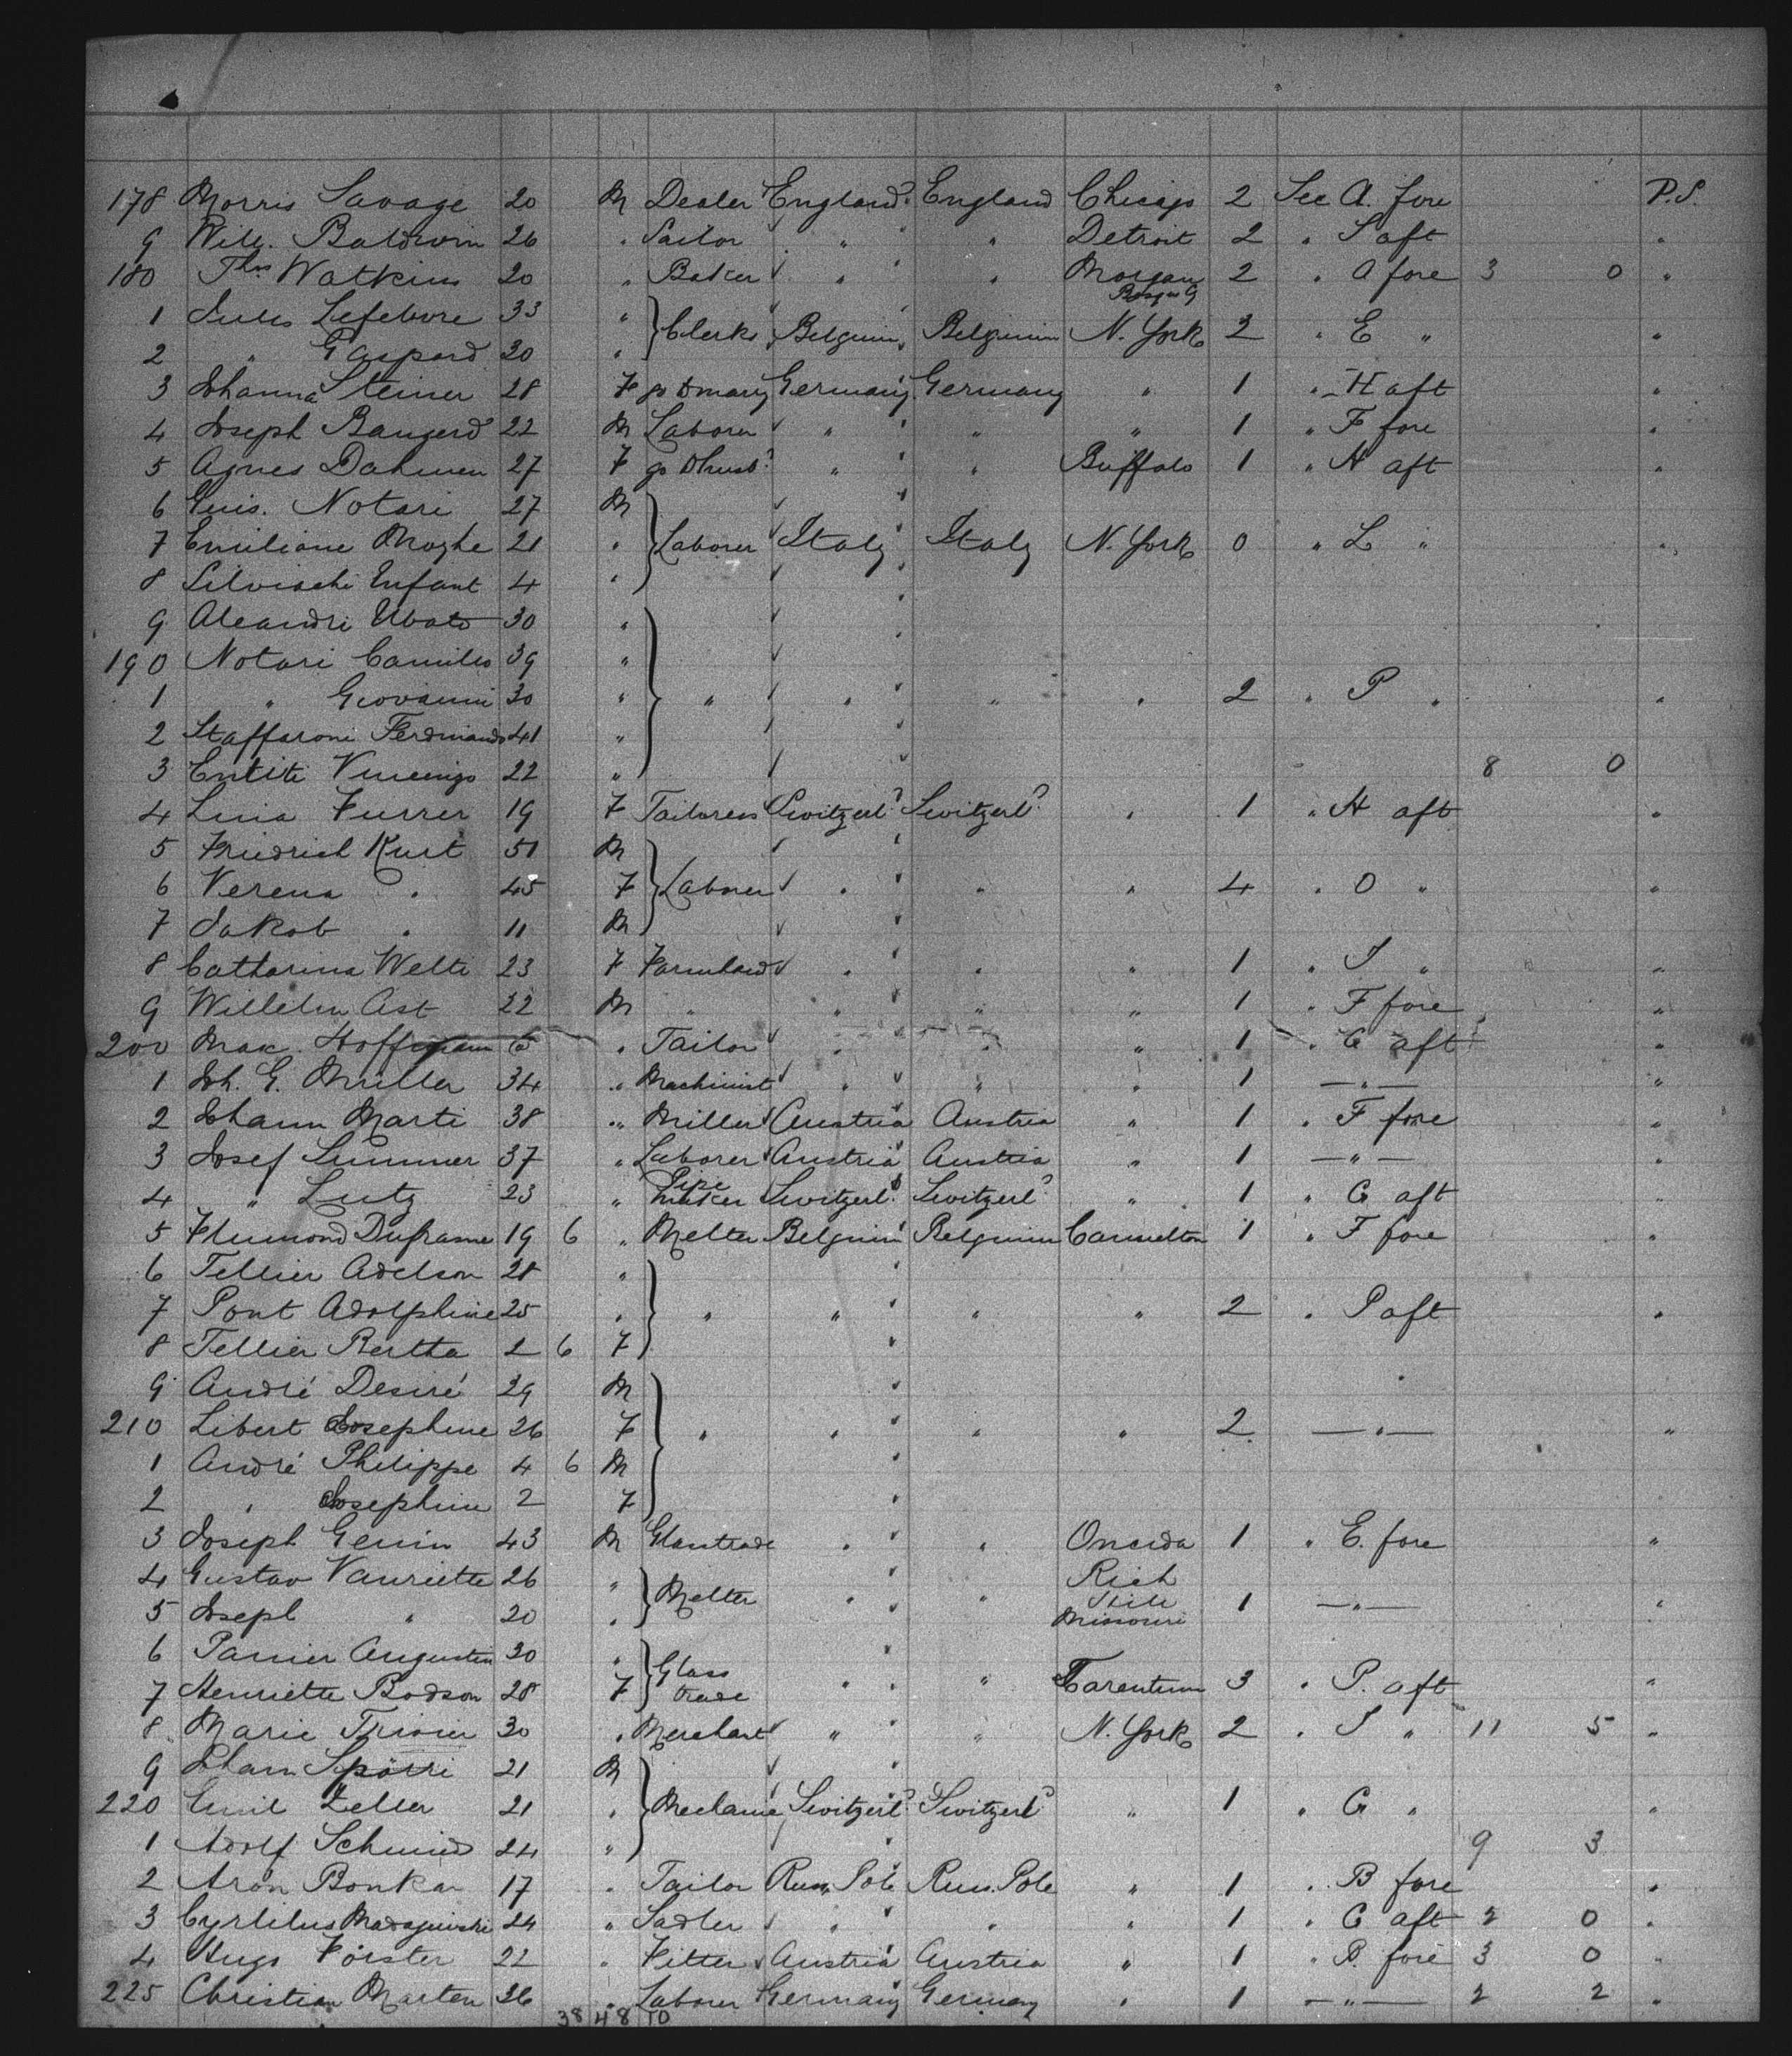 178 Morris Savage 20 M Dealer England England Chicago 2 Sec A. fore P.S.
9 Will. Baldwin 26 " Sailor " " Detroit 2 " S aft "
180 Thos Watkins 20 " Baker " " Morgan 2 " A fore 3 0 "
1 Jules Lefebvre 33 "
2 " Gaspard 30 " Clerks Belgium Belgium N. York 2 " E " "
3 Johanna Steiner 28 F go to mary Germany Germany " 1 " H aft "
4 Joseph Bangerd 22 M Laborer " " " 1 " F fore "
5 Agnes Dahmen 27 F go to husb? " " Buffalo 1 " H aft "
6 Guis. Notari 27 M
7 Emiliane Moghe 21 " Laborer Italy Italy N. York 0 " L " "
8 Silvischi Enfant 4 "
9 Aleandri Ubato 30 "
190 Notari Camilio 39 "
1 " Giovanni 30 " " " " " 2 " P " "
2 Staffaroni Ferdinando 41 "
3 Entiti Vincenzo 22 " 8 0
4 Lina Furrer 19 F Tailoress Switzerld Switzerld " 1 " H aft "
5 Friedrich Kurt 51 M
6 Verena " 45 F Laborer " " " 4 " O " "
7 Jakob " 11 M
8 Catharina Welti 23 F Farmhand " " " 1 " S " "
9 Wilhelm Ast 22 M " " " " 1 " F fore "
200 Max Hoffmann " Tailor " " " 1 " G aft "
1 Joh. G. Müller 34 " Machinist " " " 1 — " — "
2 Johann Marti 38 " Miller Austria Austria " 1 " F fore "
3 Josef Summer 37 " Laborer Austria Austria " 1 — " — "
4 " Lutz 23 " Pipe maker Switzerld Switzerld " 1 " G aft "
5 Flumond Dufrasne 19 6 " Melter Belgium Belgium Carmelton 1 " F fore "
6 Tellier Adelson 28 "
7 Pont Adolphine 25 " " " " " 2 " P aft "
8 Tellier Bertha 2 6 F
9 André Desiré 29 M
210 Libert Josephine 26 F " " " " 2 — " — "
1 André Philippe 4 6 M
2 " Josephine 2 F
3 Joseph Genin 43 M Glasstrade " " Oneida 1 " E. fore "
4 Gustav Vanriette 26 " Rich
5 Joseph " 20 " Melter " " Hill Missouri 1 — " — "
6 Panier Augustin 30 "
7 Henriette Bodson 28 F Glass trade " " Tarentum 3 " P. aft "
8 Marie Trivier 30 " Merchant " " N. York 2 " S " 11 5 "
9 Johann Spörri 21 M
220 Emil Zeller 21 " Mechanic Switzerld Switzerld " 1 " G " "
1 Adolf Schmid 24 " 9 3
2 Aron Bonkar 17 " Tailor Russ. Pole Russ. Pole " 1 " B fore "
3 Cyrlilus 24 " Sadler " " " 1 " G aft 2 0 "
4 Hugo Förster 22 " Fitter Austria Austria " 1 " B. fore 3 0 "
225 Christian Marten 26 " Laborer Germany Germany " 1 — " — 2 2 "
38 48 10